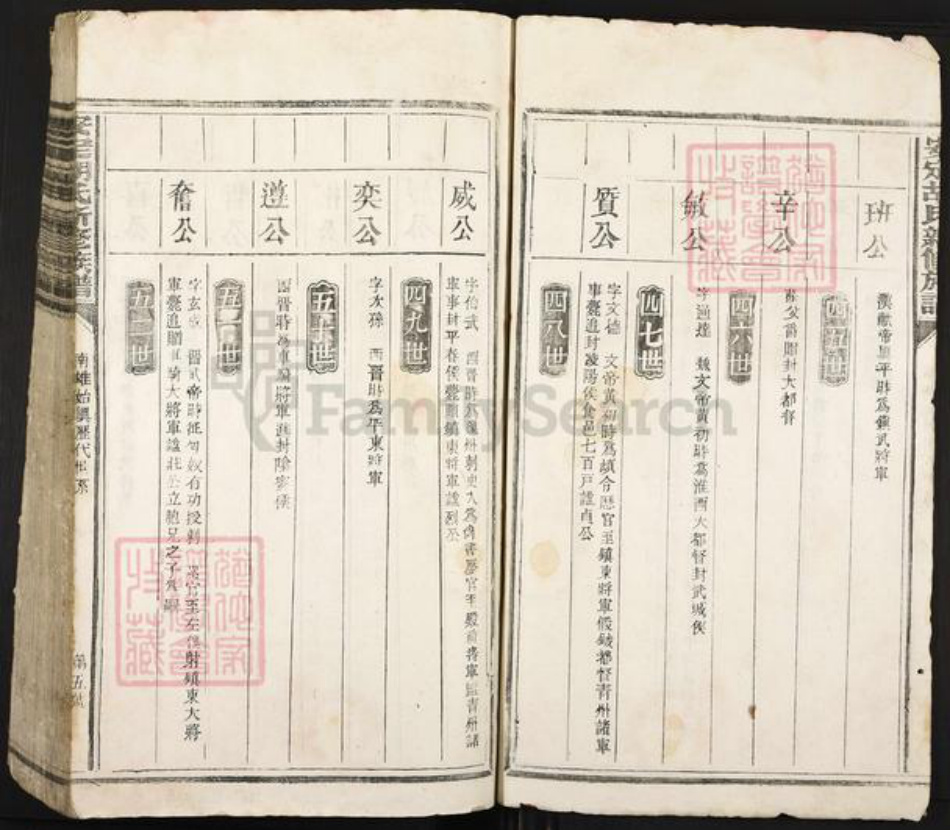 班公
漢獻帝興平時爲鎮武將軍
四五世
辛公
襲父爵贈封大都督
四六世
敏公
字通達 魏文帝黃初時爲淮西大都督封武城侯
四七世
質公
字文德 文帝黃初時爲頓令歷官至鎮東將軍假鉞都督青州諸軍
軍薨追封凌陽侯食邑七百戶諡貞公
四八世
威公
字伯武 西晉時爲徐州刺史入爲尚書歷官至殿前將軍監青州諸
軍事封平春侯薨贈鎮東將軍諡烈公
四九世
奕公
字次孫 西晉時爲平東將軍
五十世
遵公
西晉時爲車騎將軍進封陰密侯
五一世
奮公
字玄威 晉武帝時征匈奴有功授刺 官至左僕射鎮東大將
軍薨追贈車騎大將軍諡壯公立胞兄之子爲嗣
五二世
安定胡氏新修族譜
南雄始興歷代世系
第五
安定胡氏新修族譜
FamilySearch